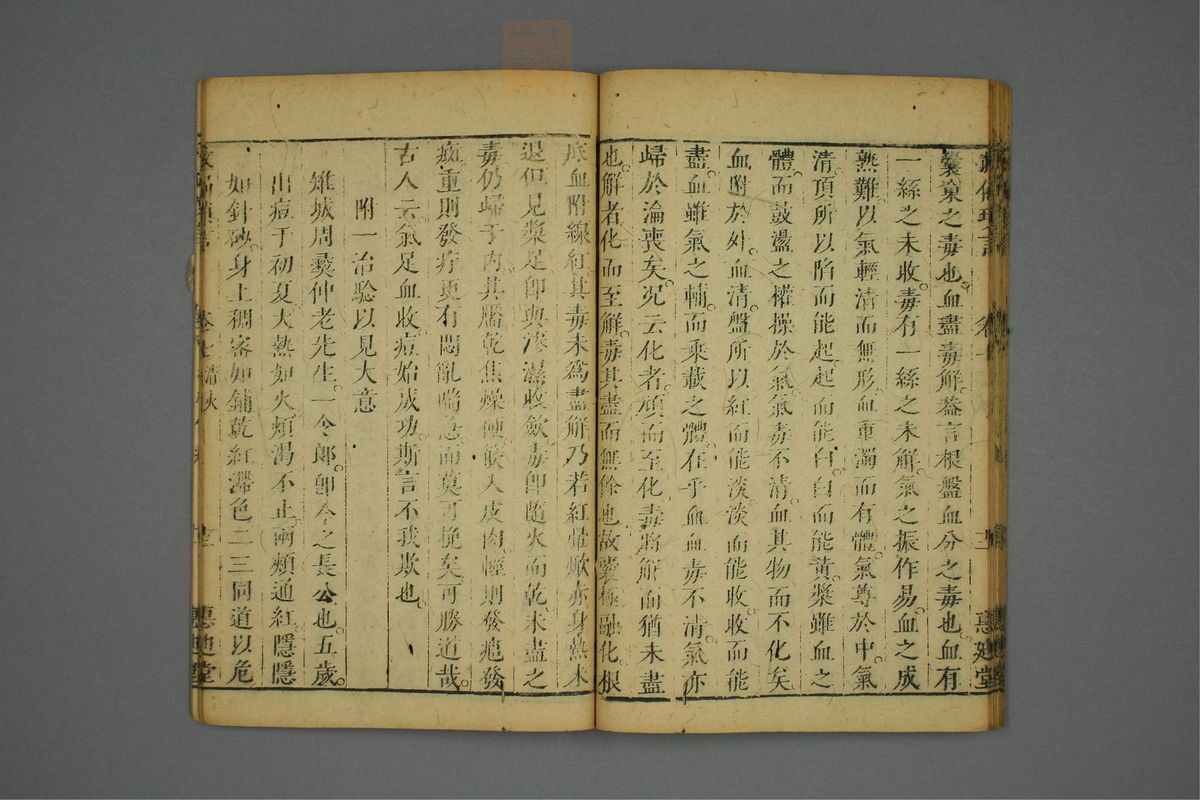 囊窠之毒也血盡毒解葢言根盤血分之毒也血有
一絲之未收毒有一絲之未解氣之振作易血之成
熟難以氣輕清而無形血重濁而有體氣尊於中氣
清頂所以陷而能起起而能白白而能黃漿雖血之
體而鼓盪之權操於氣氣毒不清血其物而不化矣
血附於外血清盤所以紅而能淡淡而能收收而能
盡血雖氣之輔而乘載之體在乎血血毒不清氣亦
歸於淪喪矣况云化者頑而至化毒將解而猶未盡
也解者化而至解毒其盡而無餘也故囊極融化根
底血附線紅其毒未爲盡解乃若紅暈焮赤身熱未
退但見漿足卽與滲濕收斂毒卽隨火而乾未盡之
毒仍歸于内其靨乾焦燥硬嵌入皮肉輕則發癍發
疵重則發疔更有悶亂喘急而莫可挽矣可勝道哉
古人云氣足血收痘始成功斯言不我欺也
附一治驗以見大意
雉城周彝仲老先生一令郎卽今之長公也五歲
出痘于初夏大熱如火煩渴不止兩頰通紅隱隱
如針砂身上稠密如鋪乾紅滯色二三同道以危